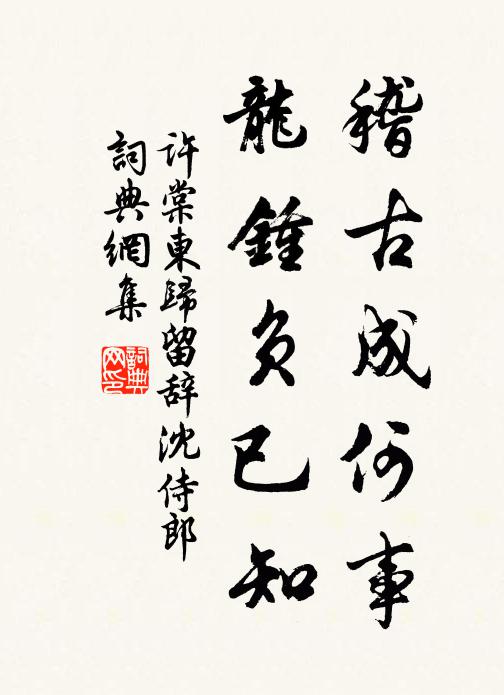 稽古成何事
龍鍾負已知
许棠東歸留辞沈侍郎
詞典網集
詞典网印